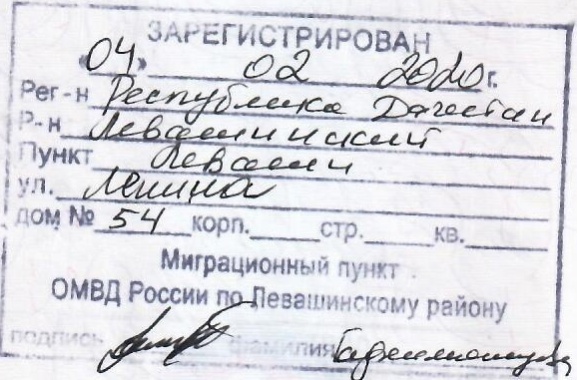 ЗАРЕГИСТРИРОВАН
«04» 02 2020 г.
Рег-н Республика Дагестан
Р-н Левашинский
Пункт Леваши
ул. Ленина
дом № 54 корп. стр. кв.
Миграционный пункт
ОМВД России по Левашинскому району
подпись фамилия